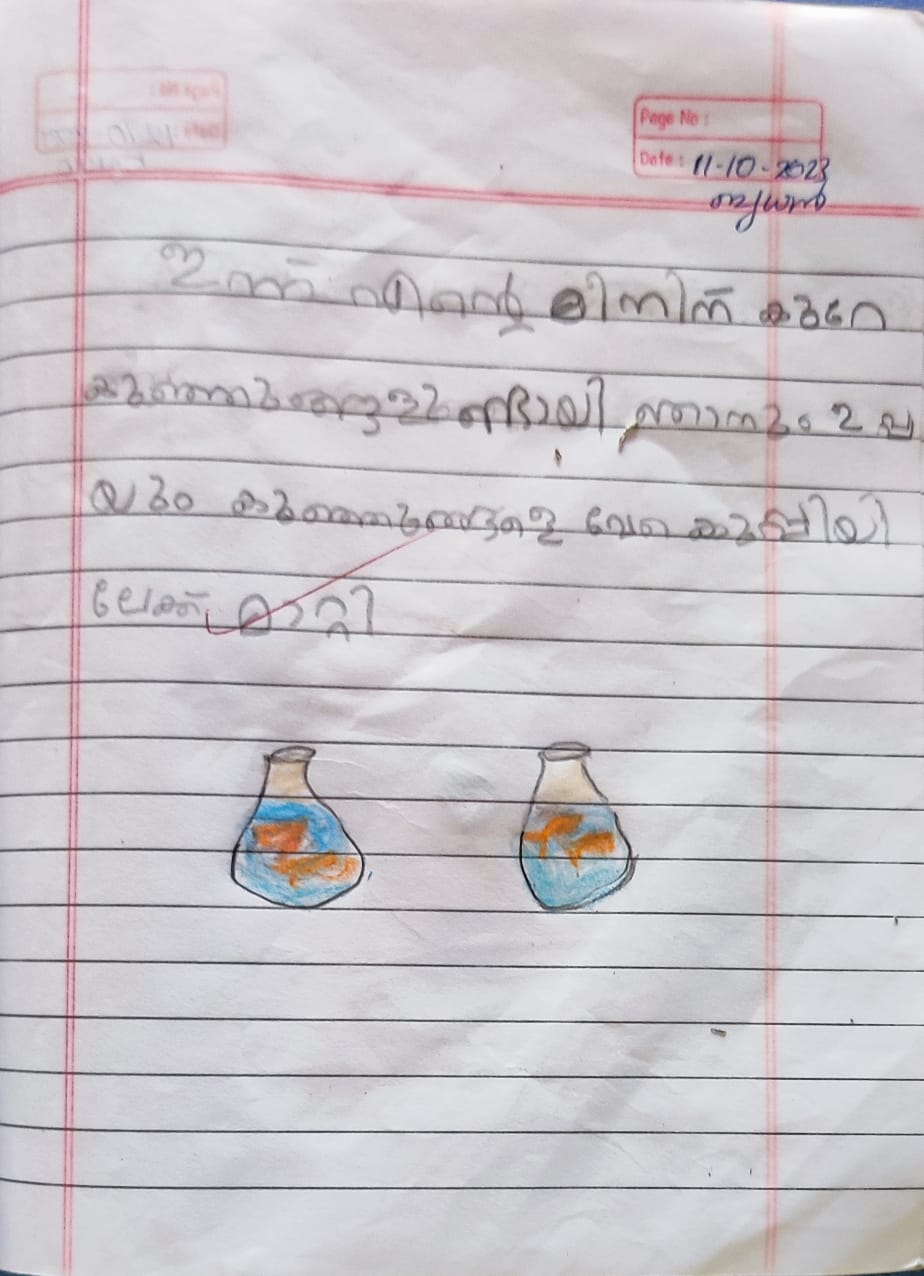 Page No :
Date : 11-10-2023
ബുധൻ
ഇന്ന് എന്റെ മീനിന് കുറേ
കുഞ്ഞുങ്ങളുണ്ടായി ഞാനും ഉപ്പ
യും കുഞ്ഞുങ്ങളെ വേറെ കുപ്പിയി
ലേക്ക് മാറ്റി